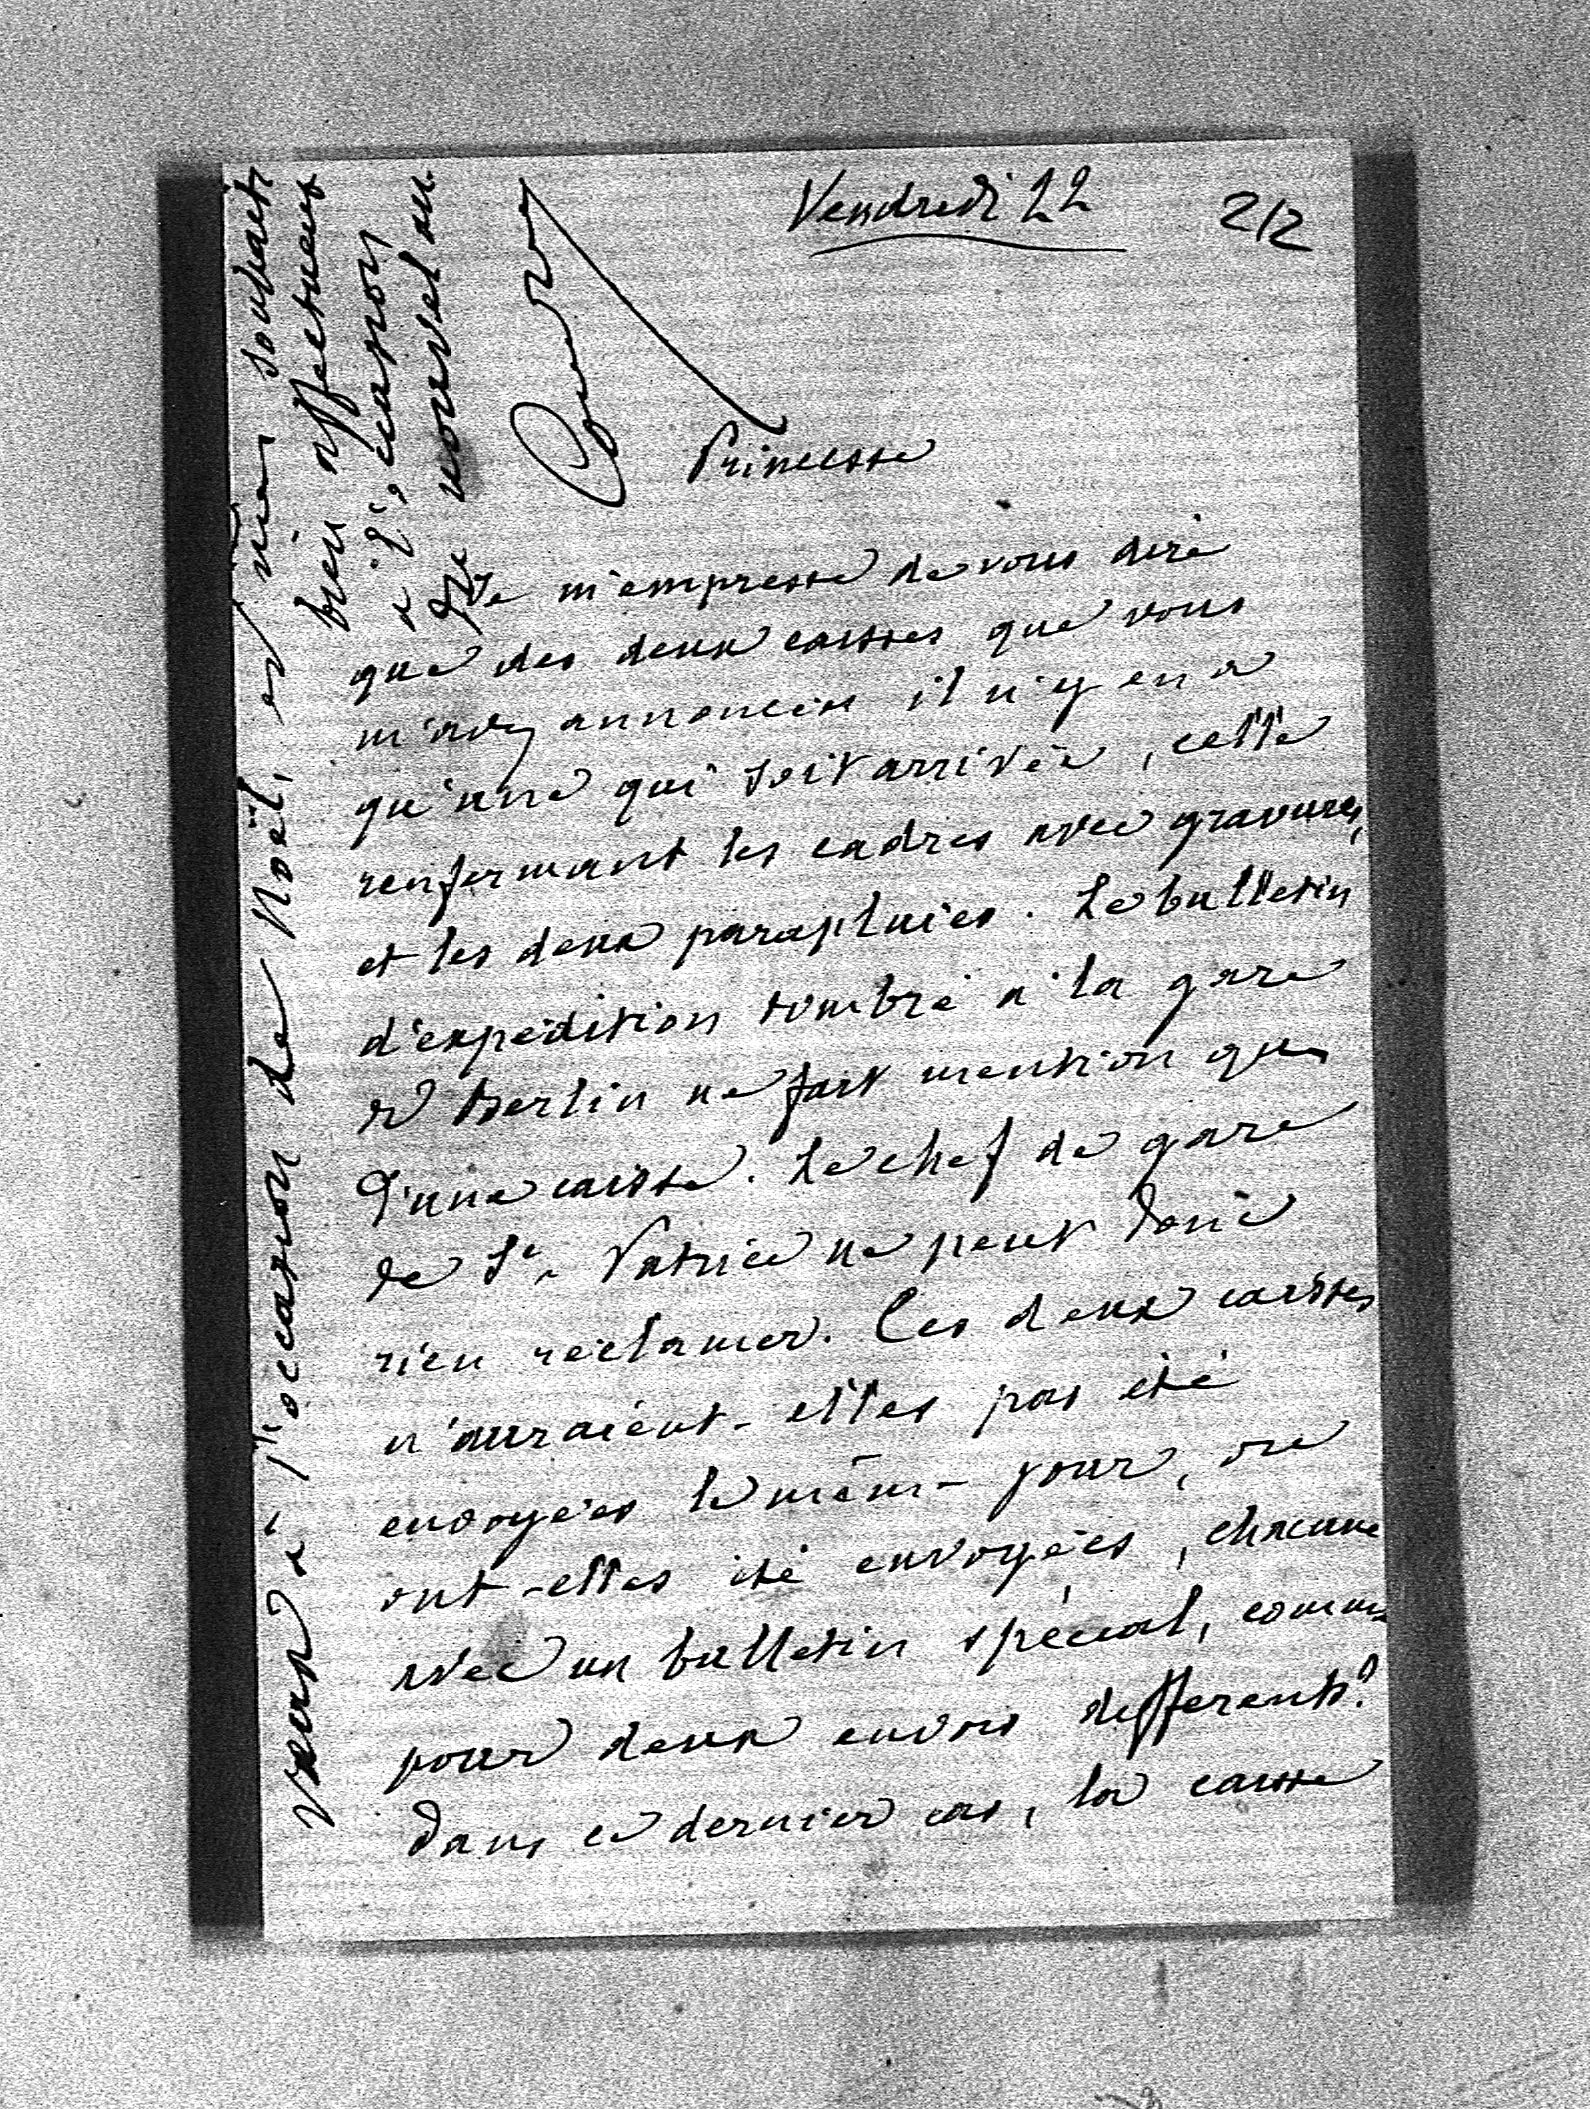 Vendredi 22
2/2
Princesse
Je m'empresse de vous dire
que des deux caisses que vous
m'avez annoncées il n'y en a
qu'une qui soit arrivée, celle
renfermant les cadres avec gravures,
et les deux parapluies. Le bulletin
d'expédition timbré à la gare
d Berlin ne fait mention que
d'une caisse. Le chef de gare
de St. Patrice ne peut donc
rien réclamer. Ces deux caisses
n'auraient-elles pas été
envoyées le même jour, ou
ont-elles été envoyées, chacune
avec un bulletin spécial, comme
pour deux envois differents?
Dans ce dernier cas, la caisse
vœux à l'occasion de Noël, et mes souhaits
bien affectueux
à l'occasion
du nouvel an